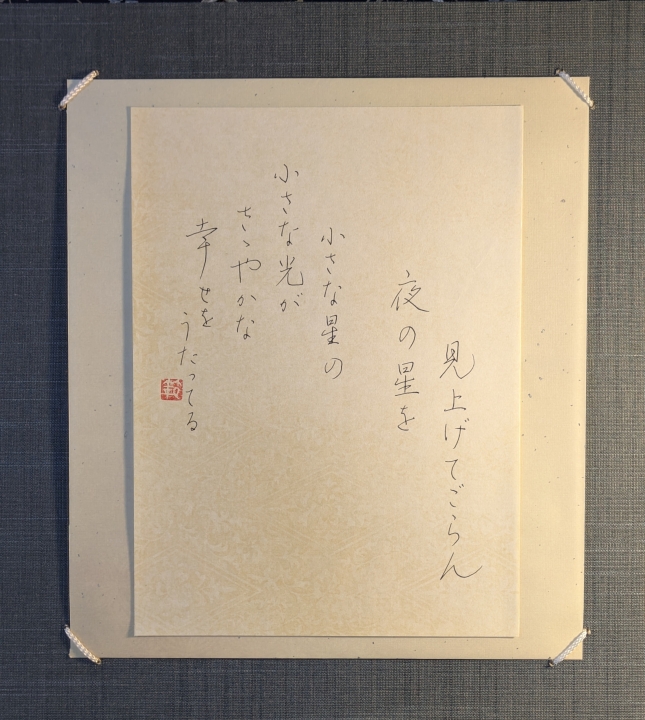 見上げてごらん
夜の星を
小さな星の
小さな光が
さゝやかな
幸せを
うたってる